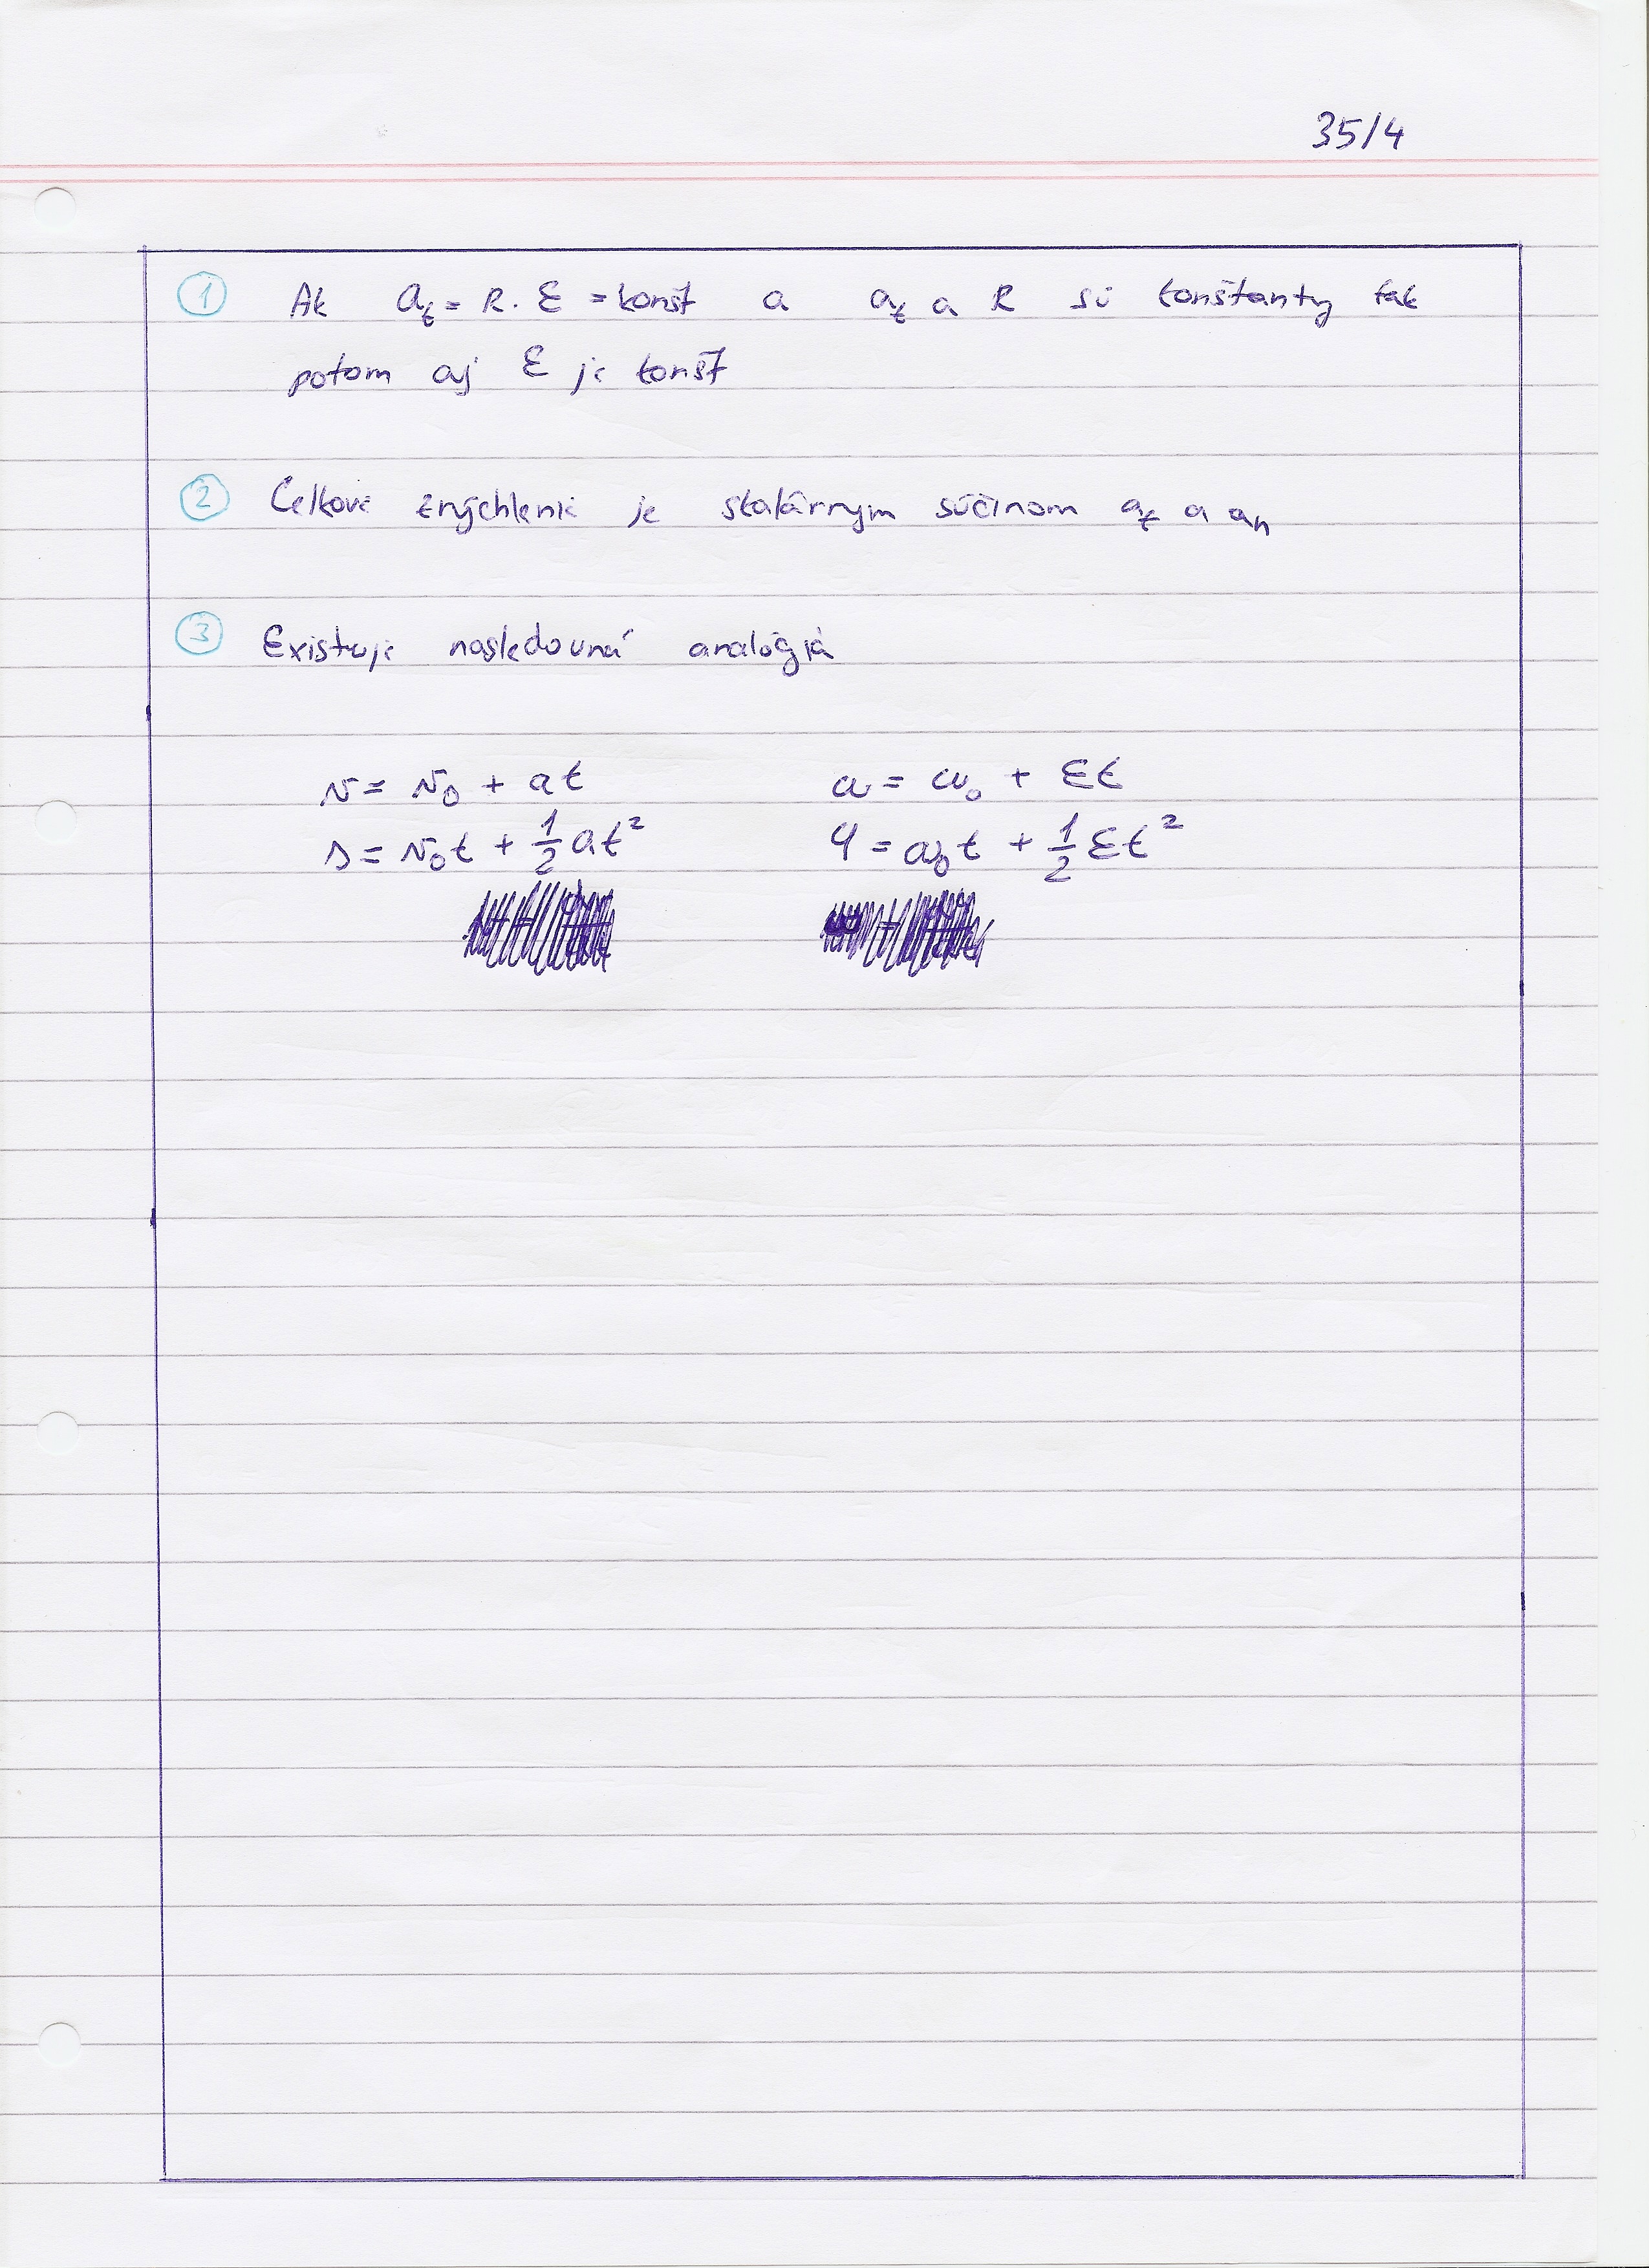 35/4
1 Ak a_t = R. ε = konšť a a_t a R sú konštanty tak
potom aj ε je konšť
2 Celkové zrýchlenie je skalárnym súčinom a_t a a_n
3 Existuje nasledovná analógia
v = v₀ + at ω = ω₀ + εt
s = v₀t + 1/2 at² φ = ω₀t + 1/2 εt²